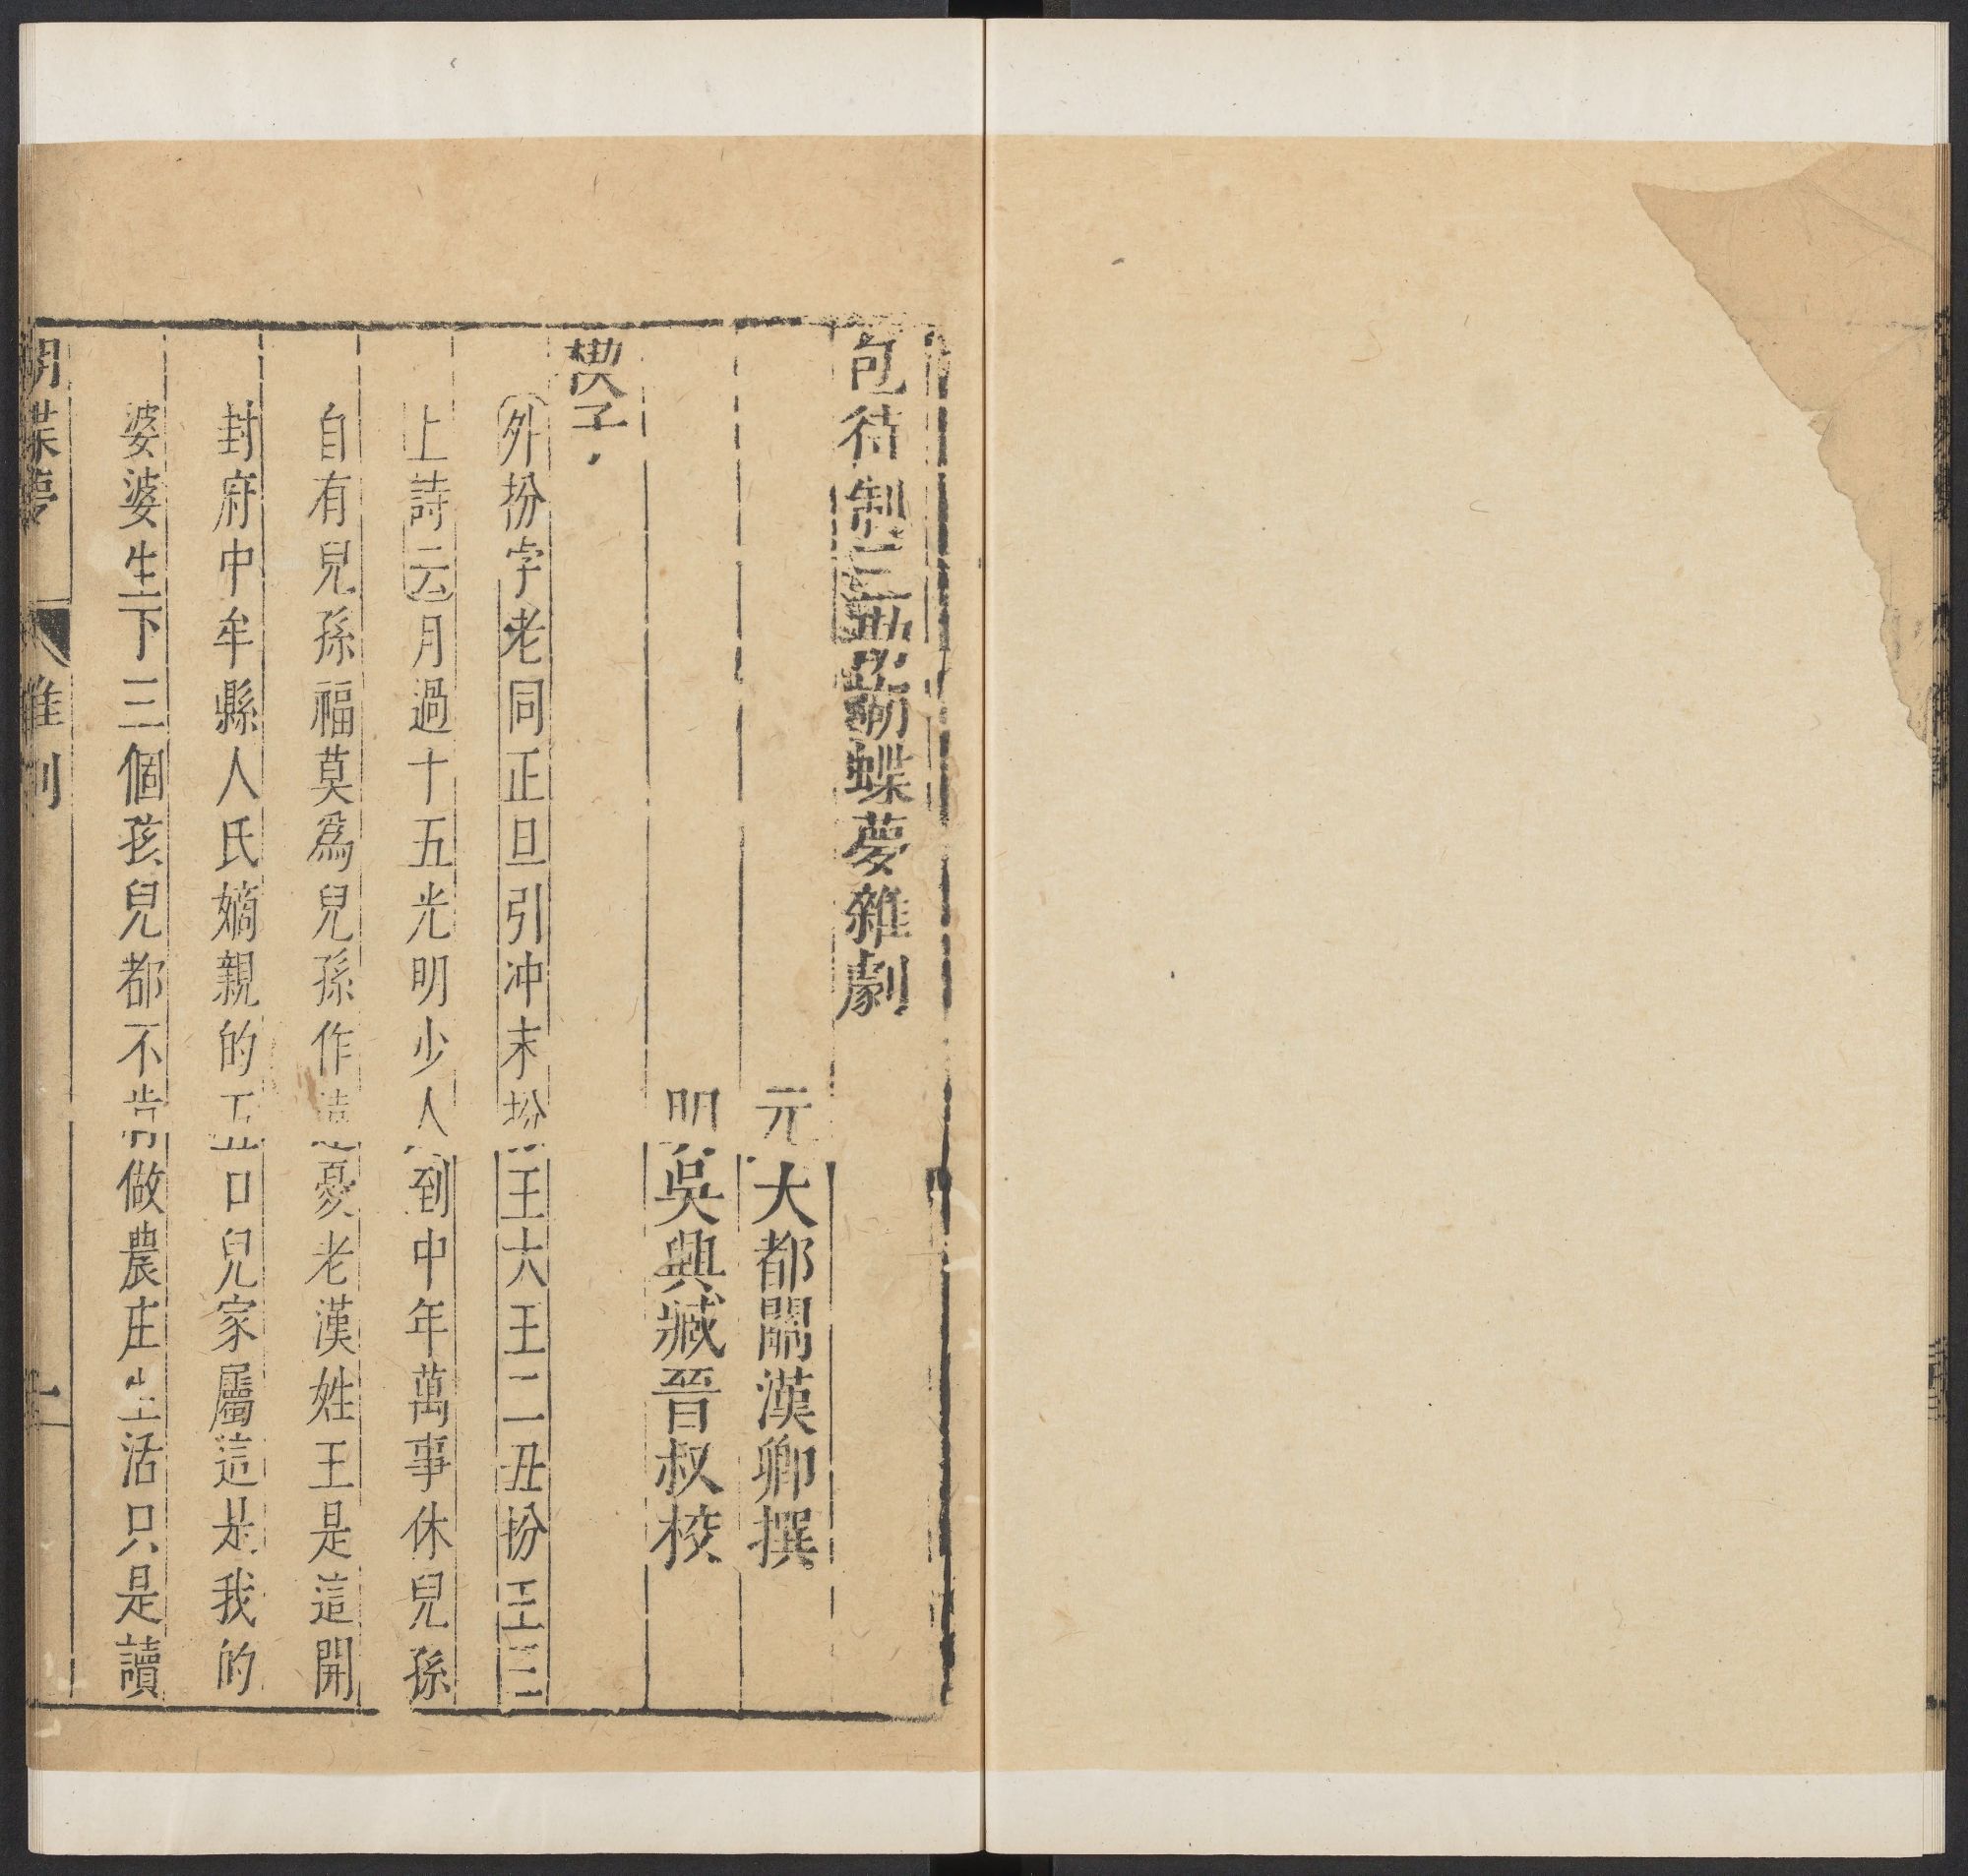 包待制三勘蝴蝶夢雜劇
元 大都關漢卿撰
明 吳興臧晉叔校
楔子
外扮孛老同正旦引冲末扮王大王二丑扮王三
上詩云月過十五光明少人到中年萬事休兒孫
自有兒孫福莫爲兒孫作遠憂老漢姓王是這開
封府中牟縣人氏嫡親的五口兒家屬這是我的
婆婆生下三個孩兒都不肯做農庄生活只是讀
蝴蝶夢 雜劇 一